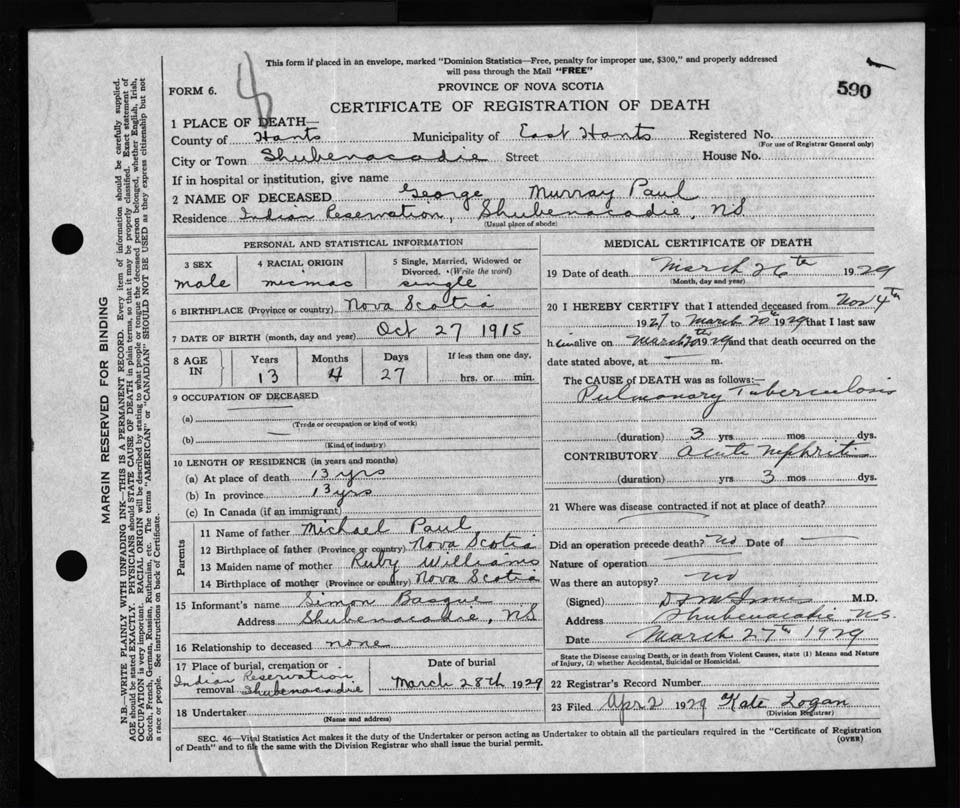 This form if placed in an envelope, marked "Dominion Statistics—Free, penalty for improper use, $300," and properly addressed
will pass through the Mail "FREE"
590
FORM 6.
PROVINCE OF NOVA SCOTIA
CERTIFICATE OF REGISTRATION OF DEATH
1 PLACE OF DEATH—
County of Hants Municipality of East Hants Registered No.
(For use of Registrar General only)
City or Town Shubenacadie Street House No.
If in hospital or institution, give name
2 NAME OF DECEASED George Murray Paul
Residence Indian Reservation, Shubenacadie, NS
(Usual place of abode)
PERSONAL AND STATISTICAL INFORMATION
3 SEX
male
4 RACIAL ORIGIN
micmac
5 Single, Married, Widowed or
Divorced. (Write the word)
single
6 BIRTHPLACE (Province or country) Nova Scotia
7 DATE OF BIRTH (month, day and year) Oct 27 1915
8 AGE IN
Years Months Days If less than one day,
13 4 27 hrs. or min.
9 OCCUPATION OF DECEASED
(a)
(Trade or occupation or kind of work)
(b)
(Kind of industry)
10 LENGTH OF RESIDENCE (in years and months)
(a) At place of death 13 yrs
(b) In province 13 yrs
(c) In Canada (if an immigrant)
Parents
11 Name of father Michael Paul
12 Birthplace of father (Province or country) Nova Scotia
13 Maiden name of mother Ruby Williams
14 Birthplace of mother (Province or country) Nova Scotia
15 Informant's name Simon Basque
Address Shubenacadie, NS
16 Relationship to deceased none
17 Place of burial, cremation or
Indian Reservation
removal Shubenacadie
Date of burial
March 28th 1929
18 Undertaker
(Name and address)
MEDICAL CERTIFICATE OF DEATH
19 Date of death March 26th 1929
(Month, day and year)
20 I HEREBY CERTIFY that I attended deceased from Nov 4th
1927 to March 20th 1929 that I last saw
h im alive on March 20th 1929 and that death occurred on the
date stated above, at m.
The CAUSE OF DEATH was as follows:—
Pulmonary Tuberculosis
(duration) 3 yrs. mos. dys.
CONTRIBUTORY acute nephritis
(duration) yrs. 3 mos. dys.
21 Where was disease contracted if not at place of death?
Did an operation precede death? no Date of
Nature of operation
Was there an autopsy? no
(Signed) M.D.
Address Shubenacadie, N.S.
Date March 27th 1929
State the Disease causing Death, or in death from Violent Causes, state (1) Means and Nature
of Injury, (2) whether Accidental, Suicidal or Homicidal.
22 Registrar's Record Number
23 Filed Apr 2 1929 Kate Logan
(Division Registrar)
SEC. 46—Vital Statistics Act makes it the duty of the Undertaker or person acting as Undertaker to obtain all the particulars required in the "Certificate of Registration
of Death" and to file the same with the Division Registrar who shall issue the burial permit.
(OVER)
MARGIN RESERVED FOR BINDING
N.B.—WRITE PLAINLY WITH UNFADING INK—THIS IS A PERMANENT RECORD. Every item of information should be carefully supplied.
AGE should be stated EXACTLY. PHYSICIANS should STATE CAUSE OF DEATH in plain terms, so that it may be properly classified. Exact statement of
OCCUPATION is very important. RACIAL ORIGIN will be described by stating to what people or tongue the deceased person belonged, whether English, Irish,
Scotch, French, German, Russian, Ruthenian, etc. The terms "AMERICAN" or "CANADIAN" SHOULD NOT BE USED as they express citizenship but not
a race or people. See instructions on back of Certificate.